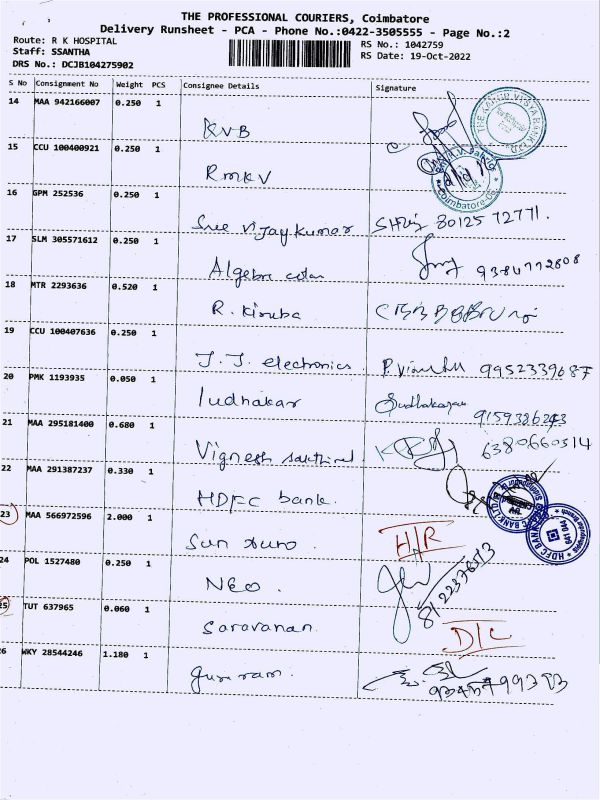 THE PROFESSIONAL COURIERS, Coimbatore
Delivery Runsheet - PCA - Phone No.:0422-3505555 - Page No.:2
Route: R K HOSPITAL
Staff: SSANTHA
DRS No.: DCJB104275902
RS No.: 1042759
RS Date: 19-Oct-2022
S No Consignment No Weight PCS Consignee Details Signature
14 MAA 942166007 0.250 1
KVB
15 CCU 100400921 0.250 1
RMKV
16 GPM 252536 0.250 1
Sree Vijaykumar 80125 72771.
17 SLM 305571612 0.250 1
Algebra 9384772808
18 MTR 2293636 0.520 1
R. Kiruba
19 CCU 100407636 0.250 1
J.J. electronics 9952339687
20 PMK 1193935 0.050 1
Sudhakar 9159386243
21 MAA 295181400 0.680 1
Vignesh 6380660314
22 MAA 291387237 0.330 1
HDFC bank.
23 MAA 566972596 2.000 1
Sun H/R
24 POL 1527480 0.250 1
NEO.
25 TUT 637965 0.060 1
Saravanan. D/L
26 WKY 28544246 1.180 1
gururam.